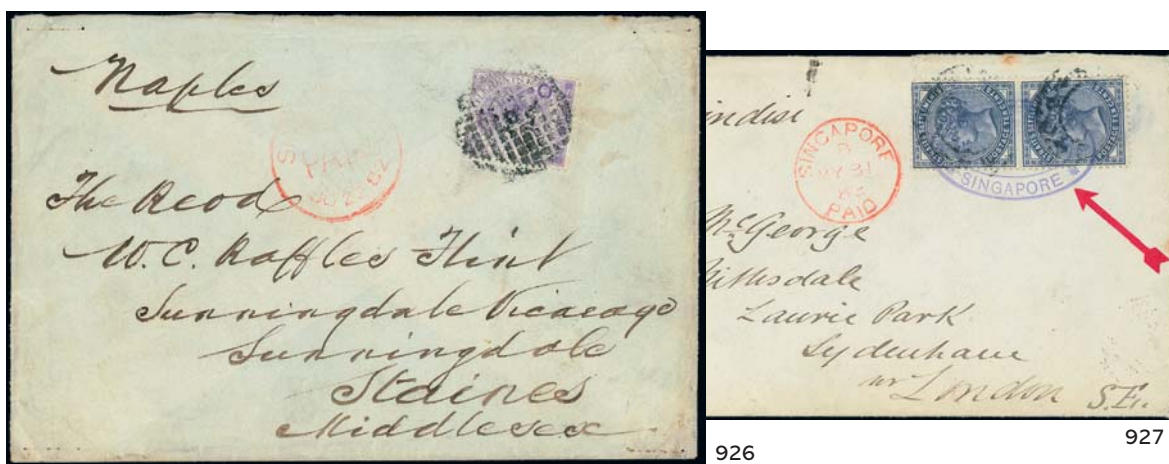 Naples
The Revd
W.C. Raffles Flint
Sunningdale Vicarage
Sunningdale
Staines
Middlesex
PAID
indisi
SINGAPORE
PAID
SINGAPORE
McGeorge
ithsdale
Laurie Park
Sydenham
nr London S.E.
926
927